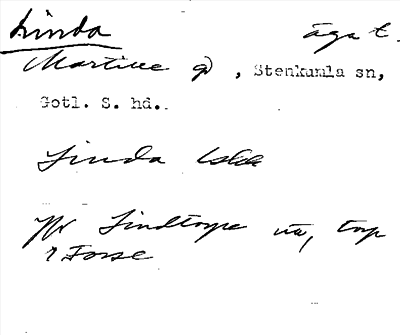 Linda äga t.
Martille gd, Stenkumla sn,
Gotl. S. hd.
Linda
Jfr Lindtorpe, torp
i Forse